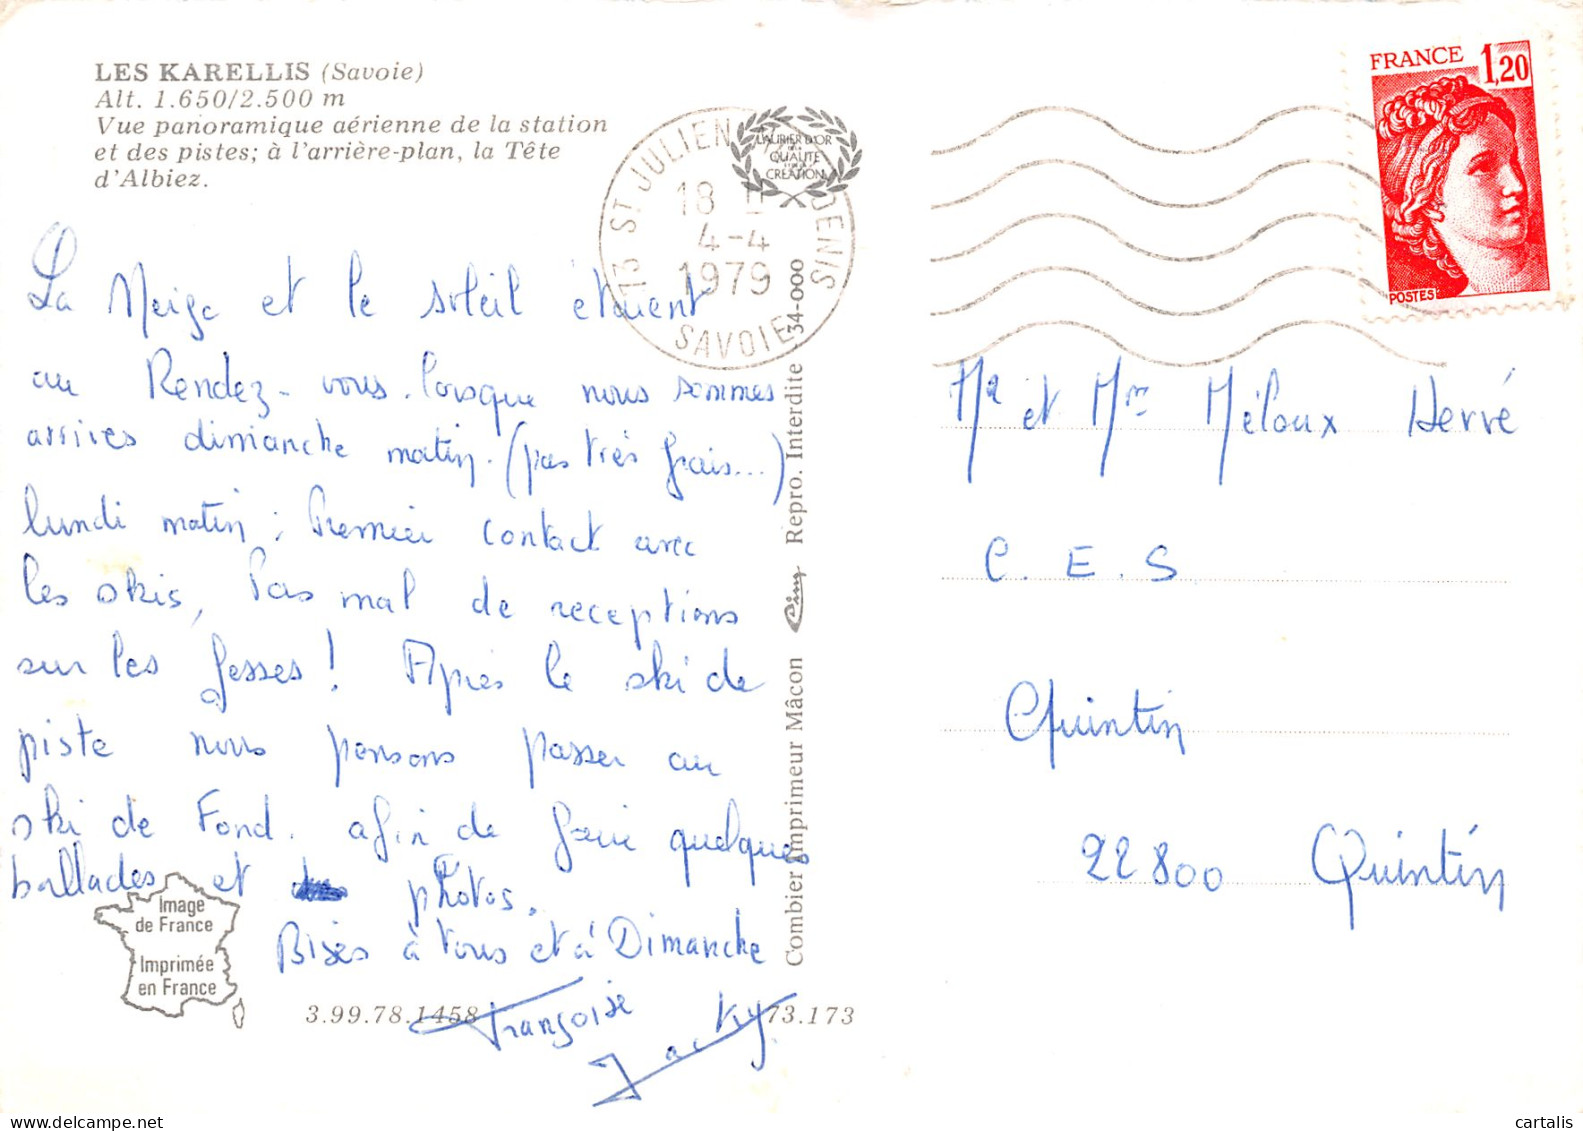 LES KARELLIS (Savoie)
Alt. 1.650/2.500 m
Vue panoramique aérienne de la station
et des pistes; à l'arrière-plan, la Tête
d'Albiez.
La Neige et le soleil étaient
au Rendez-vous. lorsque nous sommes
arrivés dimanche matin. (pas très frais...)
lundi matin; Premier contact avec
les skis, Pas mal de receptions
sur les fesses! Après le ski de
piste nous pensons passer au
ski de Fond. afin de faire quelques
ballades et photos.
Bises à vous et à Dimanche
Françoise
Jacky
Image
de France
Imprimée
en France
3.99.78.1458
73.173
Combier Imprimeur Mâcon Cim Repro. Interdite 34-000
LAURIER D'OR
QUALITÉ
CRÉATION
73 ST JULIEN DENIS
18
4-4
1979
SAVOIE
FRANCE 1,20
POSTES
Mr et Mme Méloux Hervé
C.E.S
Quintin
22800 Quintin
cartalis